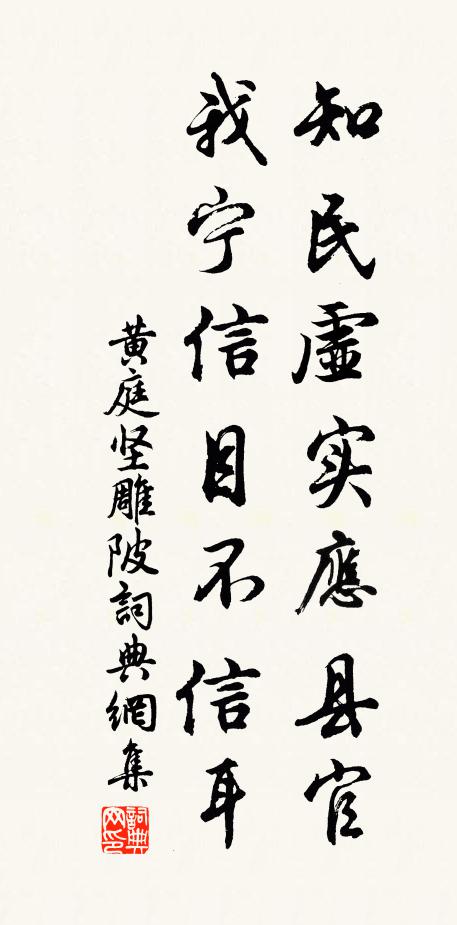 知民虛实應县官
我宁信目不信耳
黄庭坚雕陂詞典網集
詞典网印